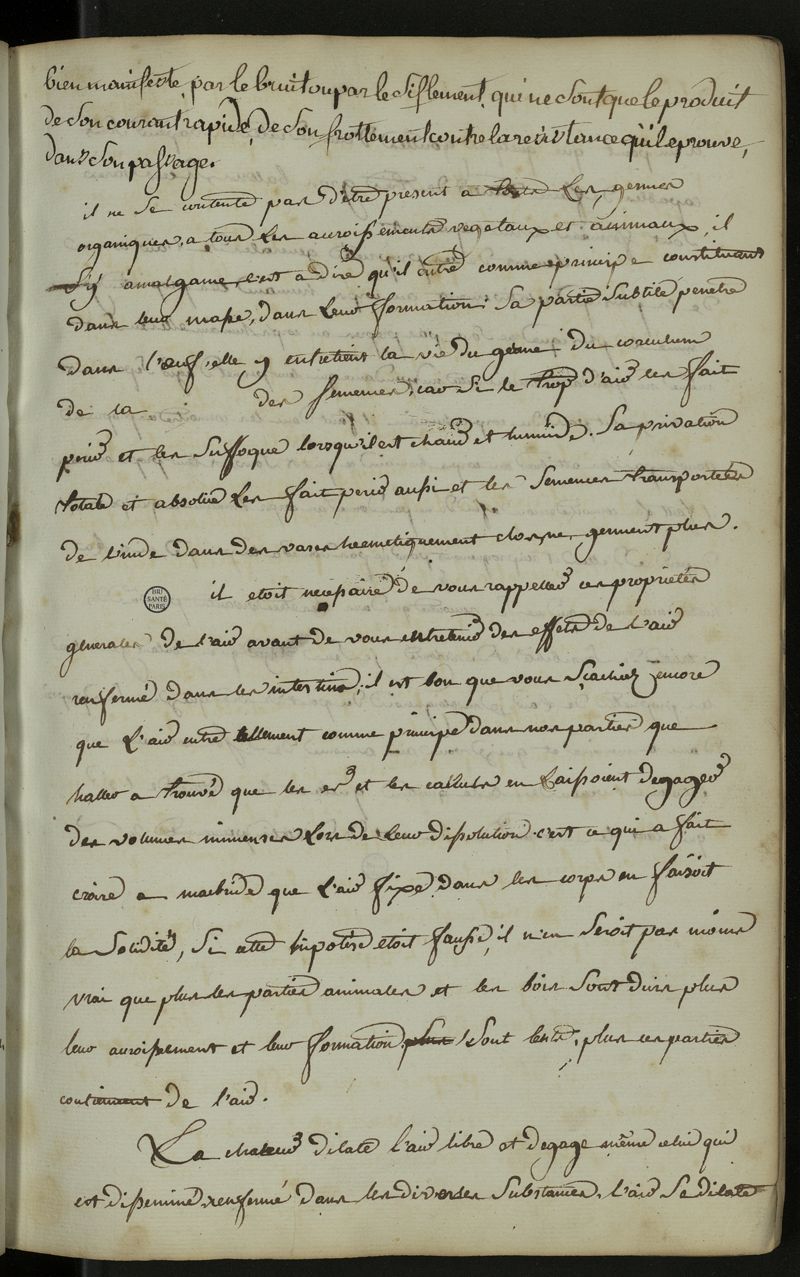 bien manifeste par le bruit ou par le Siflement qui ne Sont que le produit
de Son courant rapide, de Son frottement contre la resistance qu'il eprouve,
dans Son passage.
il ne Se contente pas d'être present a tous Les germes
organiques, a tous Les accroissements vegetaux et animaux, il
S'y amalgame, c'est a dire qu'il entre comme principe constituant
dans leur masse, dans Leur formation. Sa partie Subtile penetre
dans l'œuf, elle y entretient la vie du germe, du corculum
de la des Semences, car Si le trop d'air les fait
perir et les Suffoque lorsqu'il est chaud et humide. Sa privation
totale et absolue Les fait perir aussi et les Semences transportées
de l'inde dans des vases hermetiquement clos, ne germent plus.
BIU
SANTÉ
PARIS
il etoit necessaire de vous rappeller ces proprietés
generales de l'air avant de vous entretenir des effets de L'air
renfermé dans les intestins, il est bon que vous Scachiez encore
que L'air entre tellement comme principe dans nos parties que
haller a trouvé que les os et les calculs en Laissoient degager
des volumes immenses Lors de Leur dissolution. c'est ce qui a fait
croire a macbride que L'air fixe dans les corps en faisoit
la Solidité, Si cette hipotese etoit fausse, il n'en Seroit pas moins
vrai que plus les parties animales et les bois Sont durs plus
leur accroissement et leur formation plus Sont lents, plus ces parties
contiennent de l'air.
La chaleur dilate l'air libre et degage même celui qui
est disseminé, renfermé dans les diverses Substances. l'air Se dilate